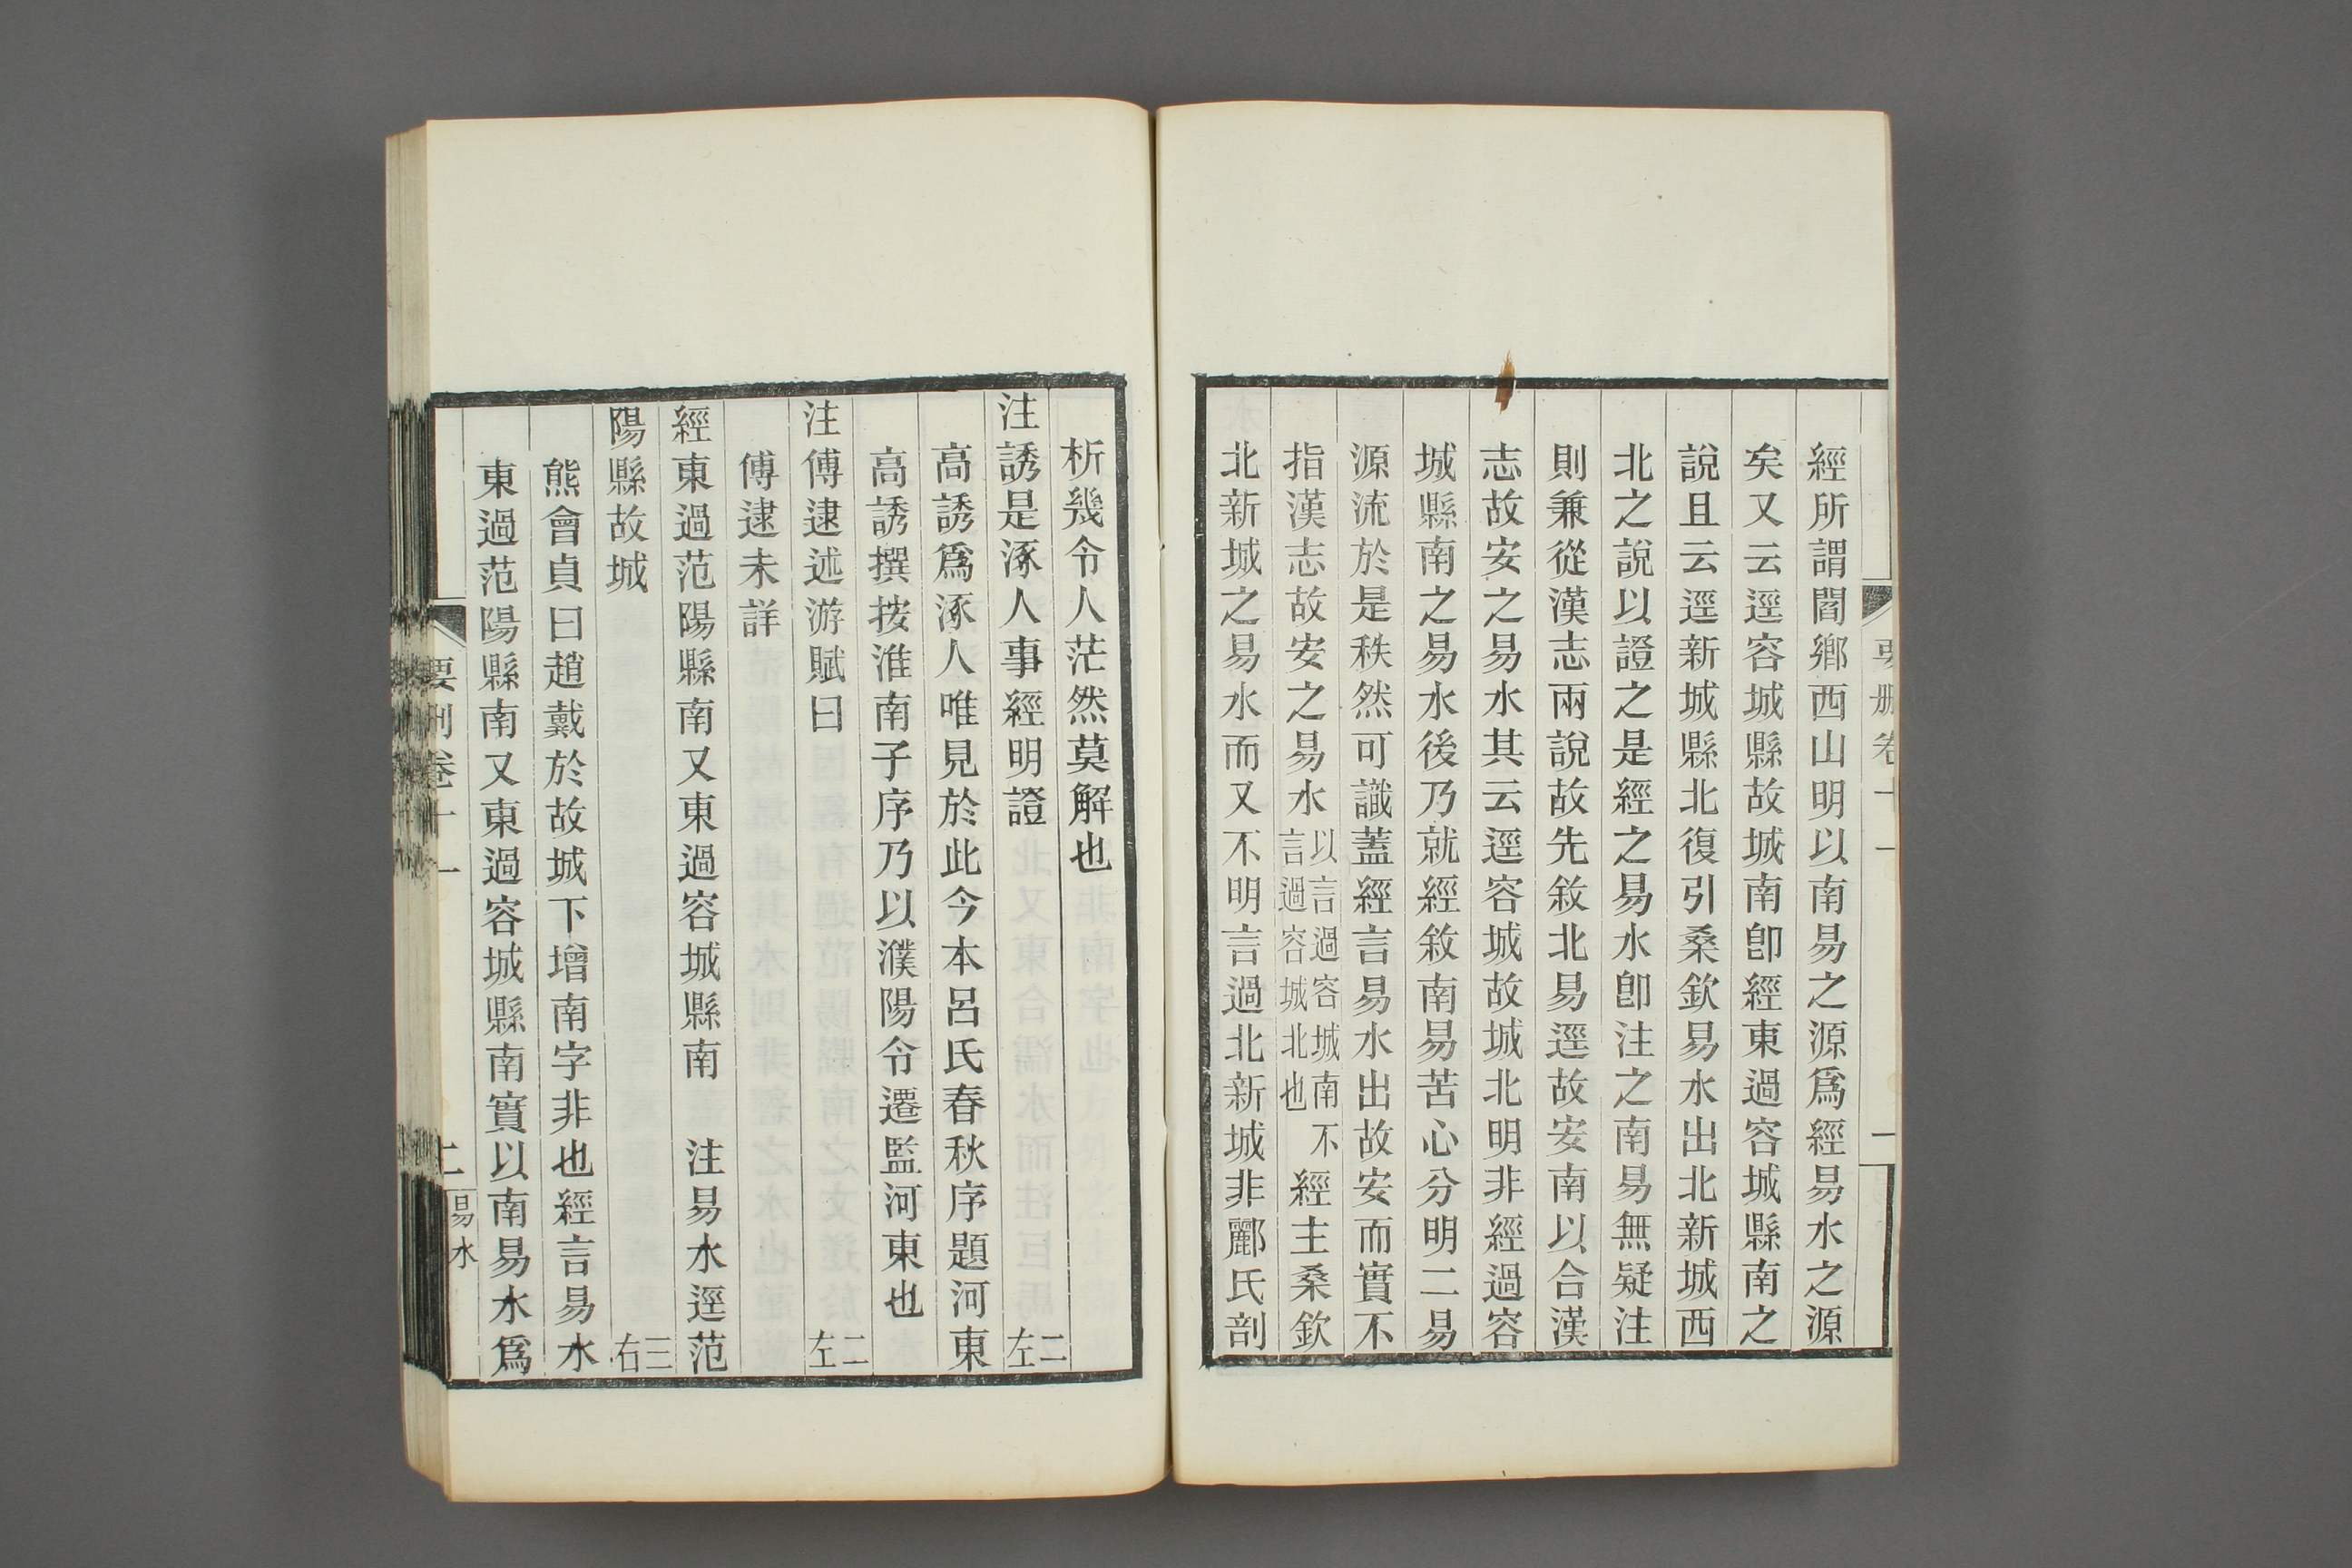 經所謂閻鄉西山明以南易之源爲經易水之源
矣又云逕容城縣故城南卽經東過容城縣南之
說且云逕新城縣北復引桑欽易水出北新城西
北之說以證之是經之易水卽注之南易無疑注
則兼從漢志兩說故先敘北易逕故安南以合漢
志故安之易水其云逕容城故城北明非經過容
城縣南之易水後乃就經敘南易苦心分明二易
源流於是秩然可識蓋經言易水出故安而實不
指漢志故安之易水以言過容城南不言過容城北也經主桑欽
北新城之易水而又不明言過北新城非酈氏剖
析幾令人茫然莫解也
注誘是涿人事經明證 二左
高誘爲涿人唯見於此今本呂氏春秋序題河東
高誘撰按淮南子序乃以濮陽令遷監河東也
注傅逮述游賦曰 二左
傅逮未詳
經東過范陽縣南又東過容城縣南 注易水逕范
陽縣故城 三右
熊會貞曰趙戴於故城下增南字非也經言易水
東過范陽縣南又東過容城縣南實以南易水爲
要刪卷十一 二 易水